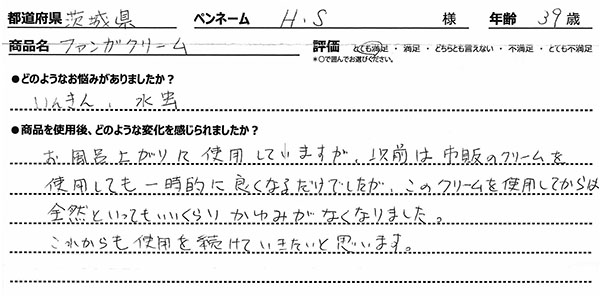 都道府県 茨城県 ペンネーム H.S 様 年齢 39歳
商品名 ファンガクリーム 評価 とても満足 ・ 満足 ・ どちらとも言えない ・ 不満足 ・ とても不満足
*○で囲んでお選びください。
●どのようなお悩みがありましたか？
いんきん、水虫
●商品を使用後、どのような変化を感じられましたか？
お風呂上がりに使用していますが、以前は市販のクリームを
使用しても一時的に良くなるだけでしたが、このクリームを使用してからは
全然といってもいいくらいかゆみがなくなりました。
これからも使用を続けていきたいと思います。